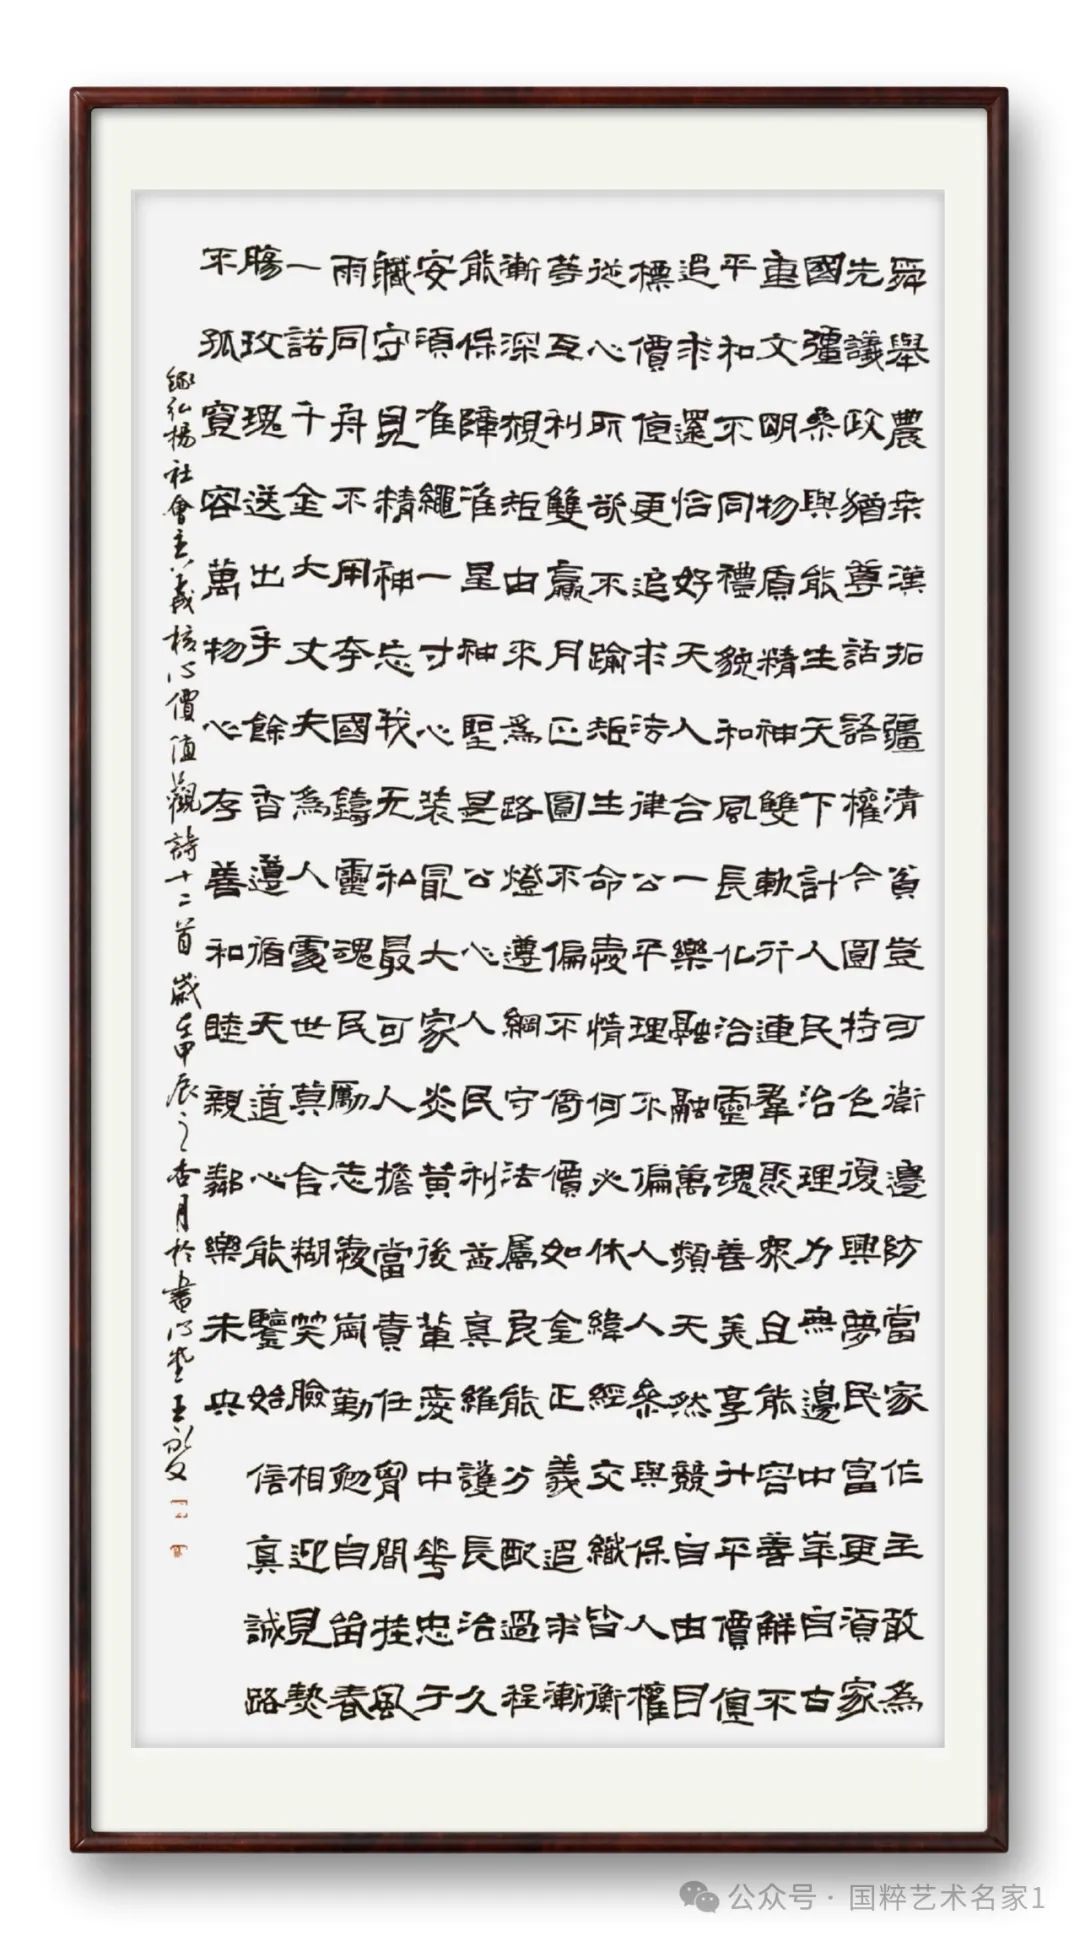 舜舉農桑漢拓疆清貧豈可衛邊防當家作主敢為
先議政猶尊話語權今圓特色復興夢民富更須家
國彊參與能生天下計人民治理力無邊中崋自古
重文明物質精神雙軌行連羣眾且能容善解不
平和不同禮貌和風長化治靈魂善美享升平價值
追求還恰好天人合一樂融融萬類天然競自由目
標價值更追求法律公平理不偏人人參與保人權
從心所欲不踰矩生命愛情何必休緯經交織皆衡
等互利雙贏月正圓不偏不倚價如全正義追求漸
漸深規矩由來為路燈遵綱守法屬良能分配過程
能保障准星神聖是公心人民利益真維護長治久
安須准繩一寸心裝冣大家炎黃後輩愛中華忠于
職守見精神忘我无私最可人擔當責任胷間挂風
雨同舟不用奔國鑄靈魂民勵志愛崗勤勉自留春
一諾千金大丈夫為人處世莫含糊笑臉相迎見熱
腸玫瑰送出手餘香遵循天道心能鑒始信真誠路
不孤寬容萬物心存善和睦親鄰樂未央
錄弘揚社會主義核心價值觀詩十二首歲在甲辰之杏月於書堂王永文
公众号 · 国粹艺术名家1